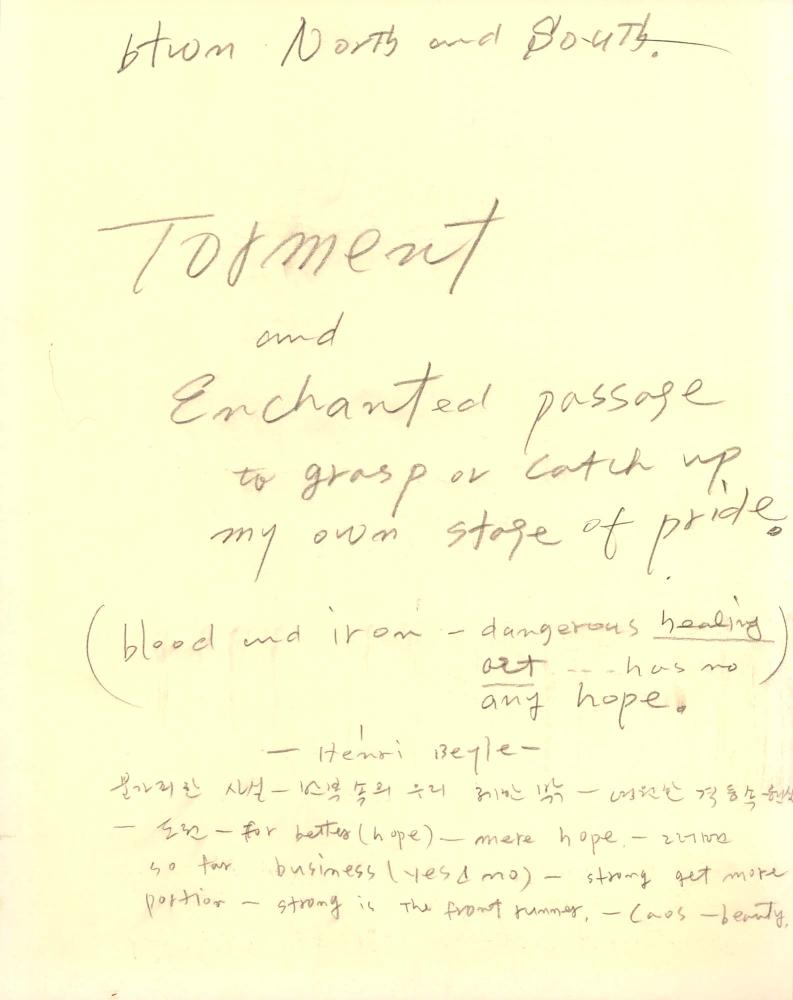 btwn North and South.
Torment
and
Enchanted passage
to grasp or catch up
my own stage of pride.
(blood and iron - dangerous healing
art .... has no)
any hope.
- Henri Beyle -
불가피한 사실 - 속의 우리 - 영원한 격동속
- 도전 - for better (hope) - mere hope. - 그러면
so far business (yes & no) - strong get more
portion - strong is the front runner. - Caos - beauty.